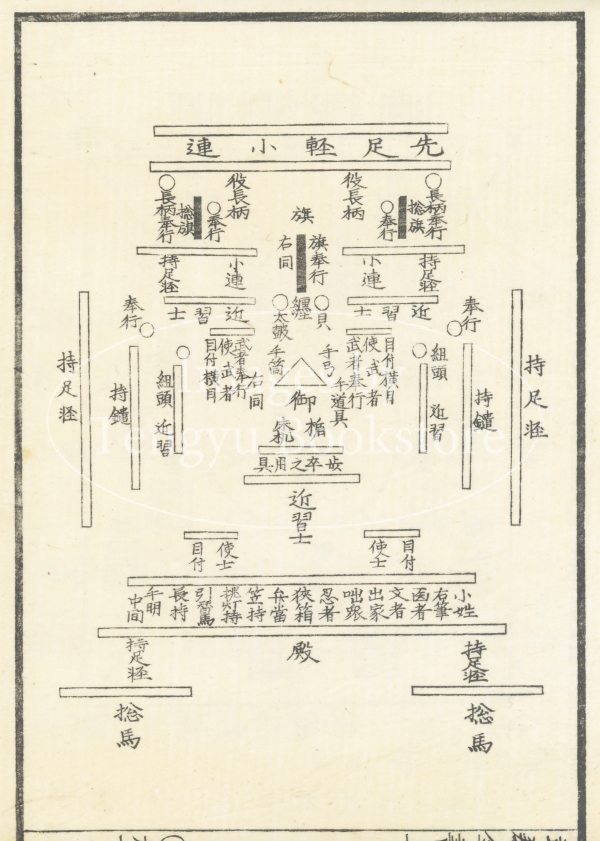 先足軽小連
長柄奉行
役長柄
役長柄
長柄奉行
捴旗
奉行
旗
奉行
捴旗
旗奉行
右同
持足軽
小連
小連
持足軽
近習士
近習士
貝
纏
太皷
奉行
奉行
持足軽
持鑓
組頭 近習
目付横目
使武者
武者奉行
手弓
手道具
手筒
右同
武者奉行
使武者
目付横目
組頭 近習
持鑓
持足軽
御
楯
卒之用具
近習士
目付
使士
使士
目付
小姓
右筆
医者
文者
出家
咄衆
忍者
狭箱
兵當
笠持
挑灯持
引替馬
長持
手明
中間
持足軽
殿
持足軽
捴馬
捴馬
Tengyu Bookstore